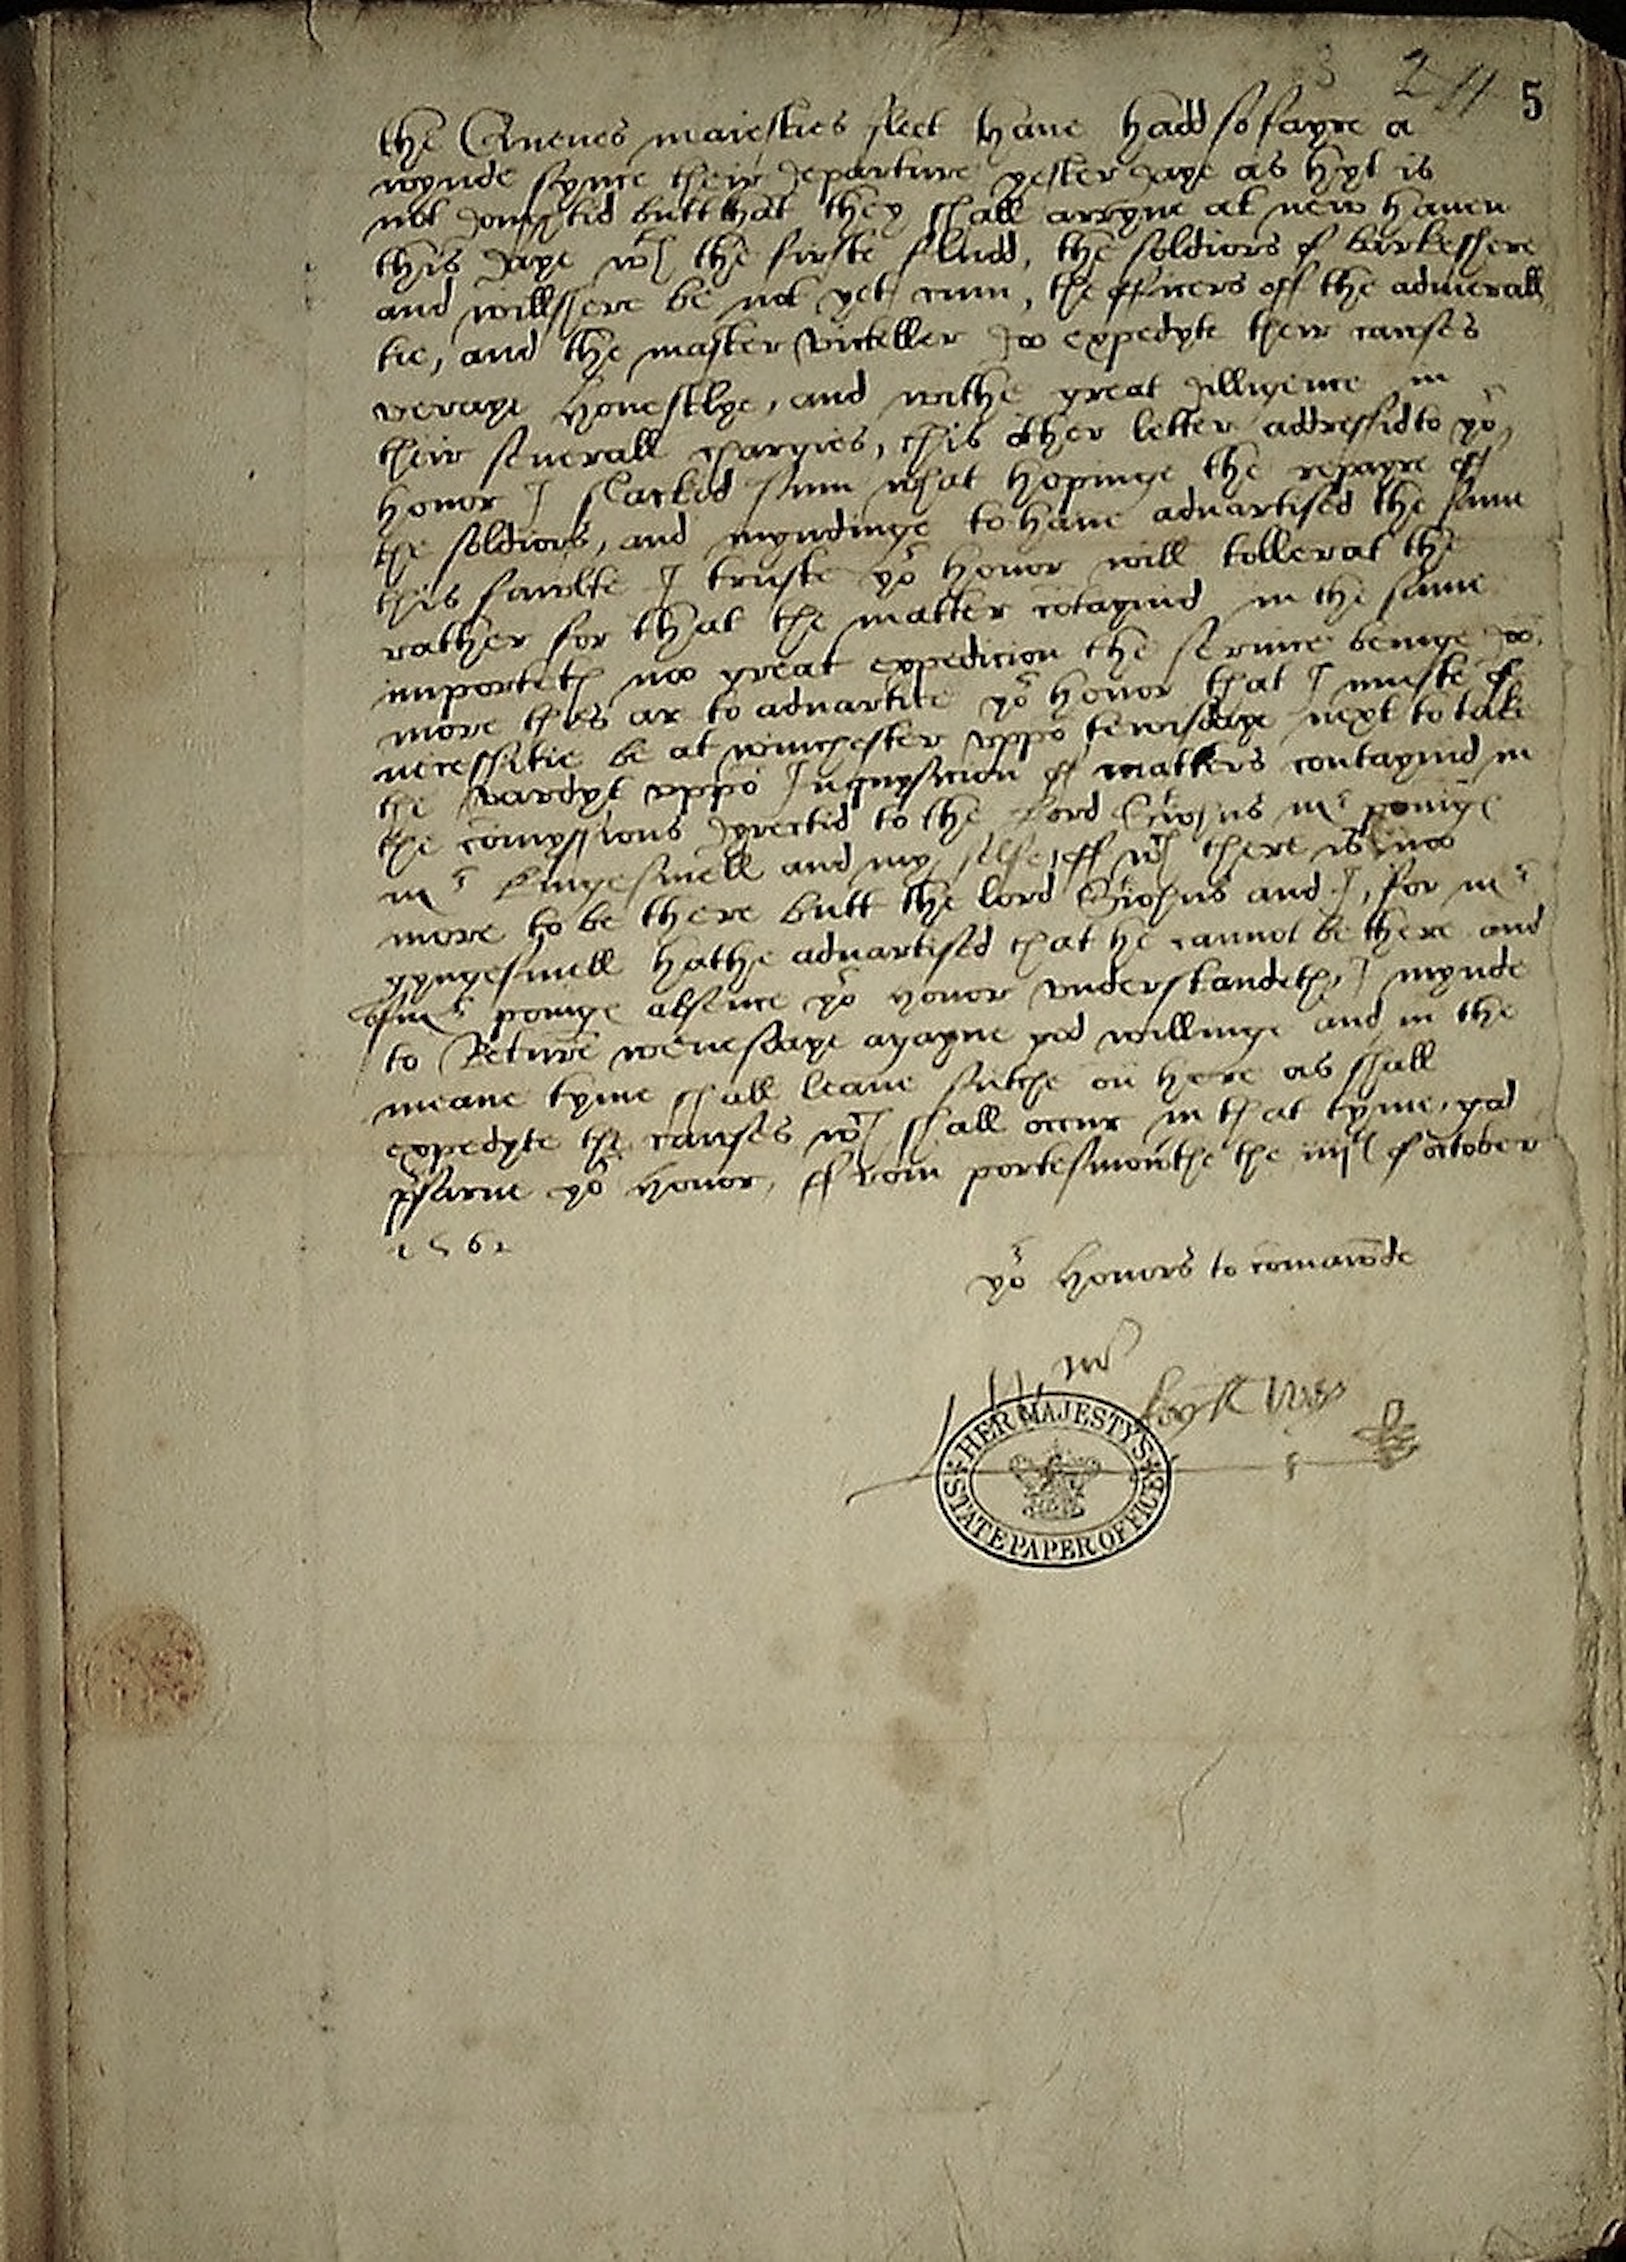 2 11 5
the Quenes maiesties fleet have hadd so fayre a
wynde synce their departure yesterdaye as hyt is
not dowtid butt that they shall arryve at new haven
this daye wth the firste fludd, the soldiors of barkeshere
and willshere be not yet cum, the officers off the admerall
tie, and the master victeller do expedyte their causes
veraye honestlye, and withe great dilligence in
their severall chargies, this other letter addressid to yor
honor I slacked sum what hopinge the repayre off
the soldiors, and myndinge to have advartised the same
this fawlte I truste yor honor will tollerat the
rather for that the matter cotaynid in the same
importeth noo great expedicion the service beinge
more this ar to advartice yor honor that I muste of
necessitie be at winchester uppo tewisdaye next to take
the vardyt uppo Inquysicion off matters contaynid in
the comyssions dyrectid to the Lord St Johns mr
mr kingesmell and my selfe, off wch there is noo
more to be there butt the lord St Johns and I, for mr
kyngesmell hathe advartised that he cannot be there and
of mr absence yor honor understandeth, I mynde
to Returne wenesdaye agayne god willinge and in the
meane tyme shall leave sutche on here as shall
expedyte the causes wch shall occur in that tyme, god
prsarve yor honor, ffrom portesmouthe the iiijth of october
1562
yor honors to comawnde
HER MAJESTY'S STATE PAPER OFFICE